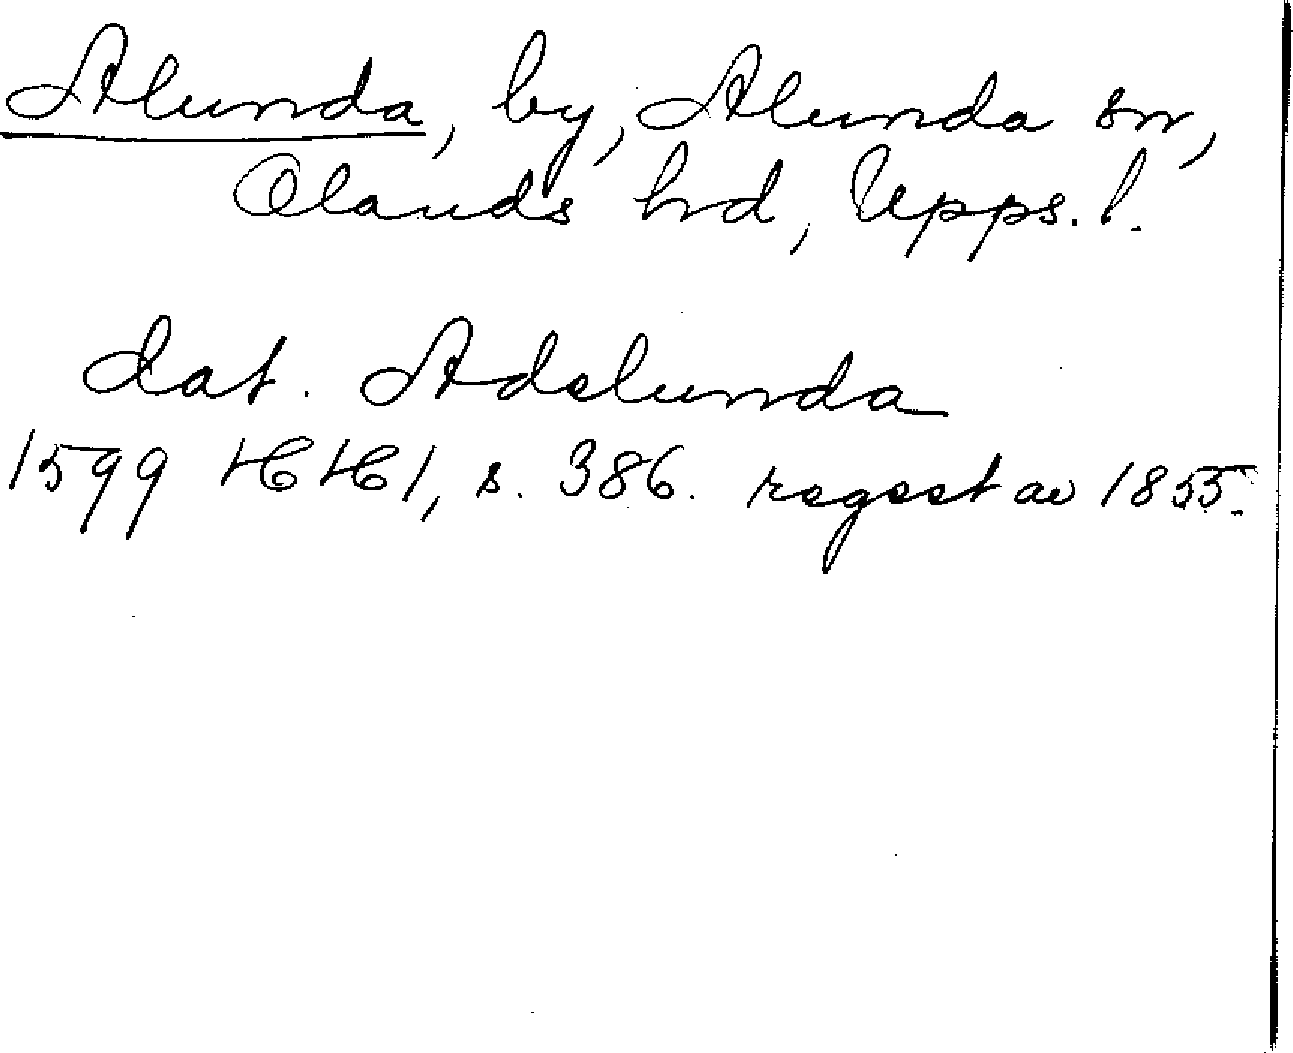 Alunda, by, Alunda sn,
Olands hrd, Upps. l.
dat. Adslunda
1599 HH 1, s. 386. regest av 1855.